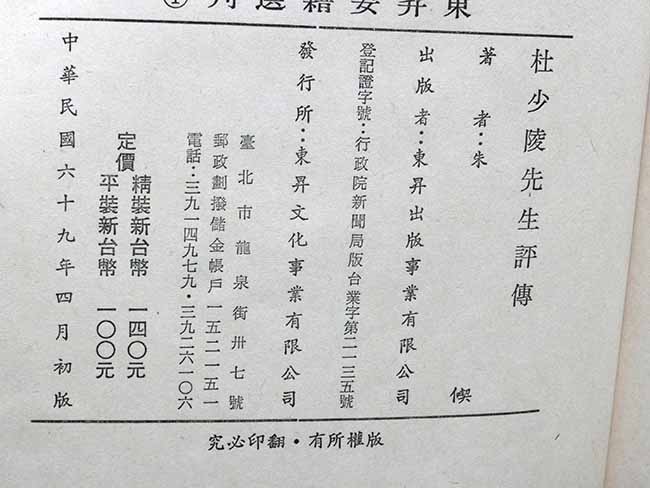 東昇要籍選刊①
杜少陵先生評傳
著者：朱偰
出版者：東昇出版事業有限公司
登記證字號：行政院新聞局版台業字第二一三五號
發行所：東昇文化事業有限公司
臺北市龍泉街卅七號
郵政劃撥儲金帳戶一五二一五一
電話：三九一四九七九·三九二六一〇六
定價
精裝新台幣 一四〇元
平裝新台幣 一〇〇元
中華民國六十九年四月初版
版權所有·翻印必究